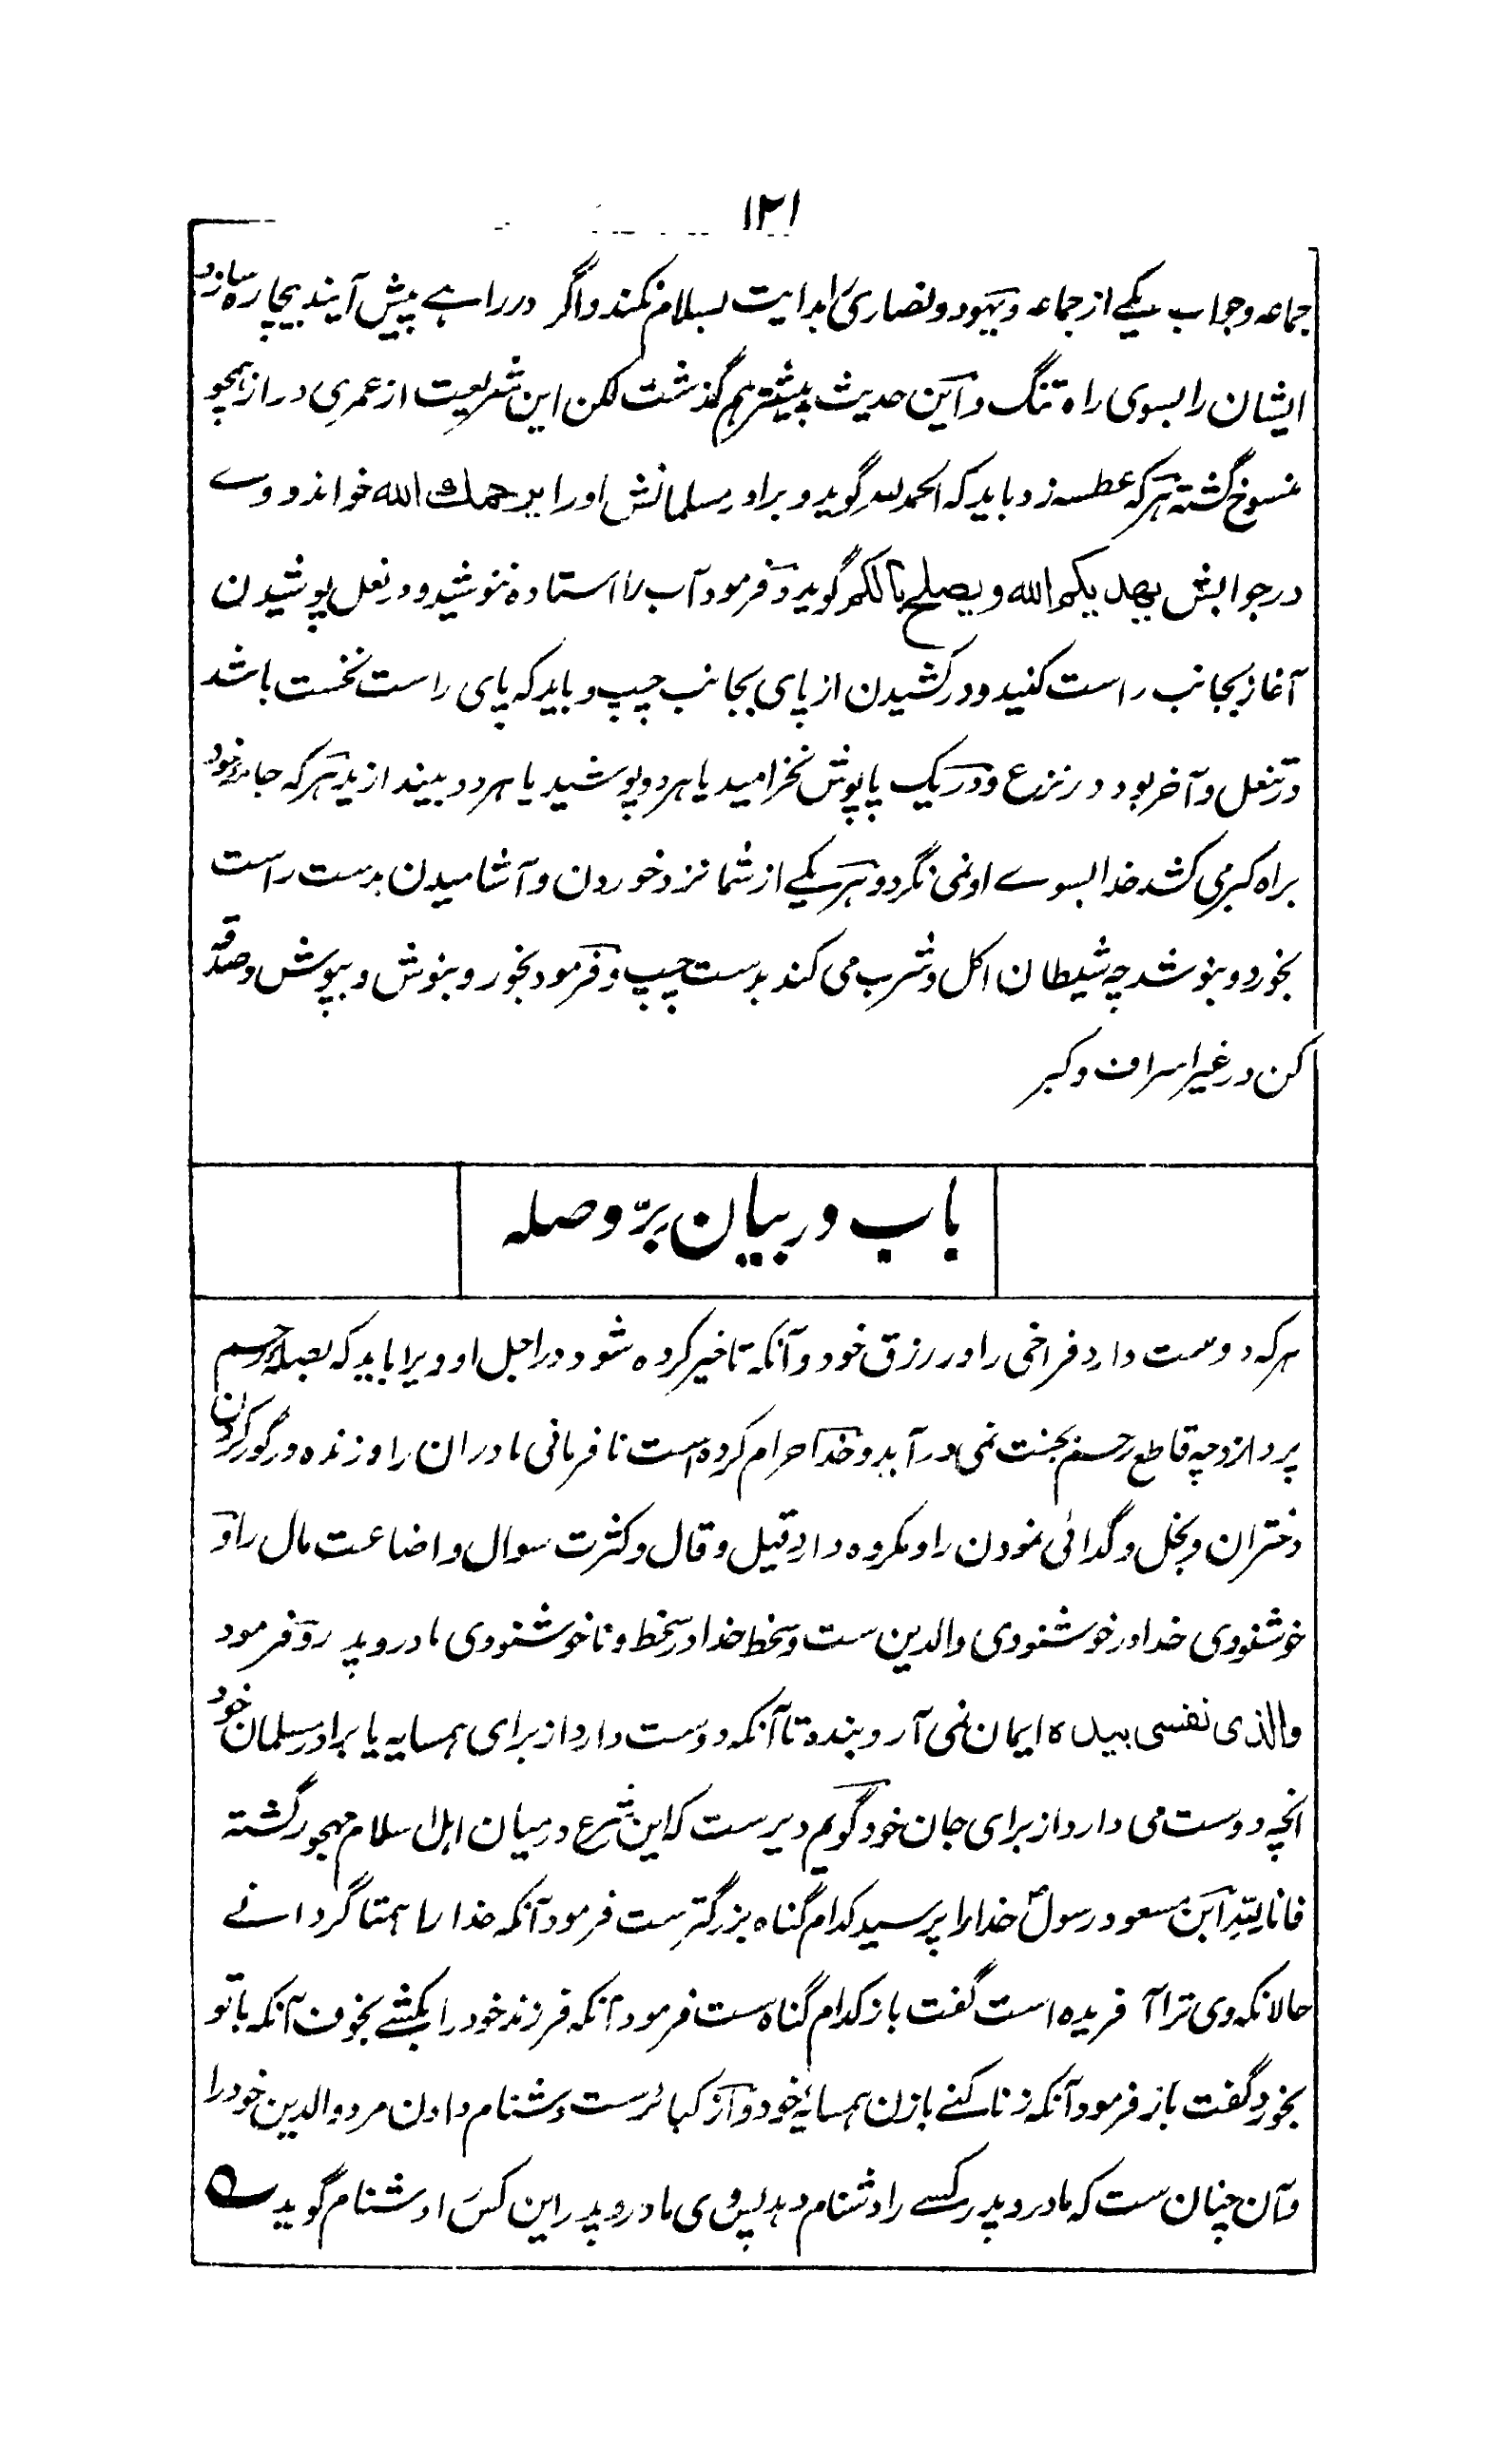 ۱۲۱
جماعه و جواب یکے از جماعه و یهود و نصاریٰ را بدایت بسلام نکند و اگر در راهے پیش آیند بیچاره سازد
ایشان را بسوی راه تنگ و این حدیث پیشتر هم گذشت لکن این شریعت از عمری دراز همچو
منسوخ گشته هرکه عطسه زد باید که الحمد لله گوید و برادر مسلمانش او را یرحمك الله خواند و وے
در جوابش یهدیکم الله ویصلح بالکم گوید و فرمود آب را استاده ننوشید و در نعل پوشیدن
آغاز بجانب راست کنید و در کشیدن از پای بجانب چپ و باید که پای راست نخست باشد
در تنعل و آخر بود در نزع و در یک پاپوش نخرامید یا هر دو پوشید یا هر دو بیندازید هرکه جامه خود
براه کبر می کشد خدا بسوے او نمی نگرد و هر یکے از شما نزد خوردن و آشامیدن بدست راست
بخورد و بنوشد چه شیطان اکل و شرب می کند بدست چپ و فرمود بخور و بنوش و بپوش و صدقه
کن در غیر اسراف و کبر
باب در بیان برّ و صله
هرکه دوست دارد فراخی را در رزق خود و آنکه تاخیر کرده شود در اجل او ویرا باید که بصلۀ رحم
پردازد چه قاطع رحم بجنت نمی در آید و خدا حرام کرده است نافرمانی مادران را و زنده در گور کردن
دختران و بخل و گدائی نمودن را و مکروه دارد قیل و قال و کثرت سوال و اضاعت مال را و
خوشنودی خدا در خوشنودی والدین ست و سخط خدا در سخط و ناخوشنودی مادر و پدر و فرمود
والذی نفسی بیده ایمان نمی آرد بنده تا آنکه دوست دارد از برای همسایه یا برادر مسلمان خود
انچه دوست می دارد از برای جان خود گویم دیرست که این شرع درمیان اهل اسلام مهجور گشته
فانا لله ابن مسعود رسولؐ خدا را پرسید کدام گناه بزرگترست فرمود آنکه خدا را همتا گردانے
حالانکه وی ترا آفریده است گفت باز کدام گناه ست فرمود آنکه فرزند خود را بکشے بخوف آنکه با تو
بخورد گفت باز فرمود آنکه زنا کنے با زن همسایۀ خود و از کبائرست دشنام دادن مرد والدین خود را
و آن چنان ست که مادر و پدر کسے را دشنام دهد پس وی مادر و پدر این کس را دشنام گوید ے